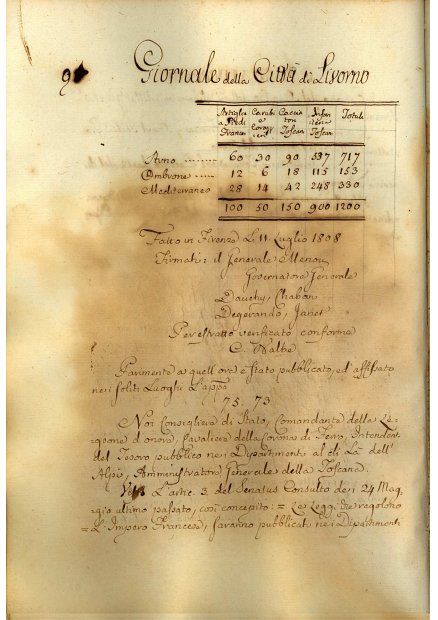 9
Giornale della Città di Livorno
Artiglie Carabi Caccia Infan Totale
a Piedi e ton teria
Francesi Toscan Toscan
Arno 60 30 90 537 717
Ombrone 12 6 18 115 153
Mediterraneo 28 14 42 248 330
100 50 150 900 1200
Fatto in Firenze Li 11 Luglio 1808
Firmati: il Generale Menou
Governatore Generale
Dauchy, Chaban
Degerando, Janet
Per estratto verificato conforme
C. Balbe
Parimente a quell'ora è stato pubblicato, ed affissato
nei soliti Luoghi L'appo
75. 73
Noi Consigliere di Stato, Comandante della Le-
gione d'onore, Cavaliere della Corona di Ferro, Intendente
del Tesoro pubblico nei Dipartimenti al di La dell'
Alpi, Amministratore Generale della Toscana.
L'artic. 3. del Senatus Consulto dei 24 Mag-
gio ultimo passato, così concepito: = Le Leggi che regolano
= L'Impero Francese, saranno pubblicate nei Dipartimenti